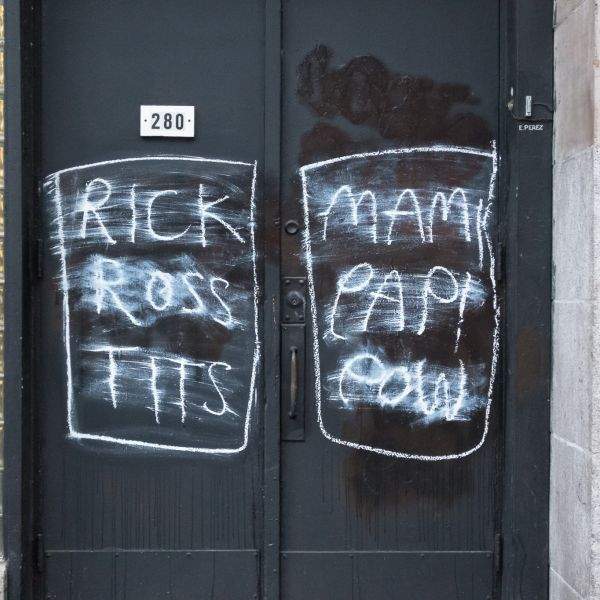 ·280·
E.PEREZ
RICK
ROSS
TITS
MAMI
PAPI
POW